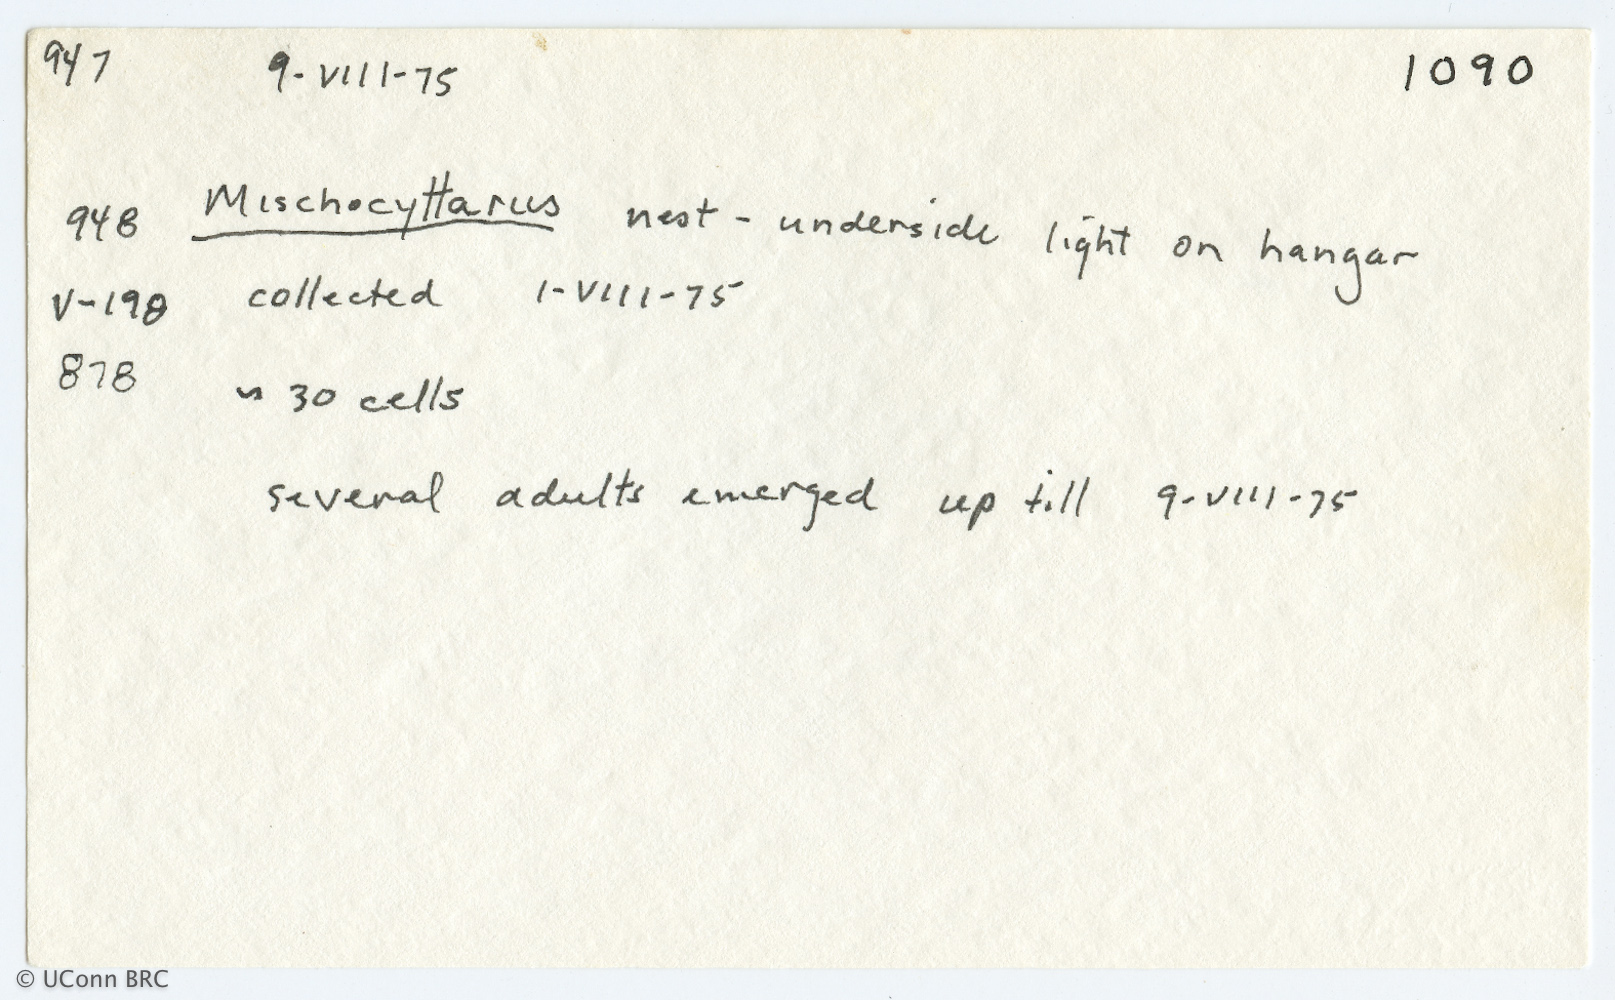 947 9-VIII-75 1090
948 Mischocyttarus nest - underside light on hangar
V-198 collected 1-VIII-75
878
~ 30 cells
several adults emerged up till 9-VIII-75
© UConn BRC